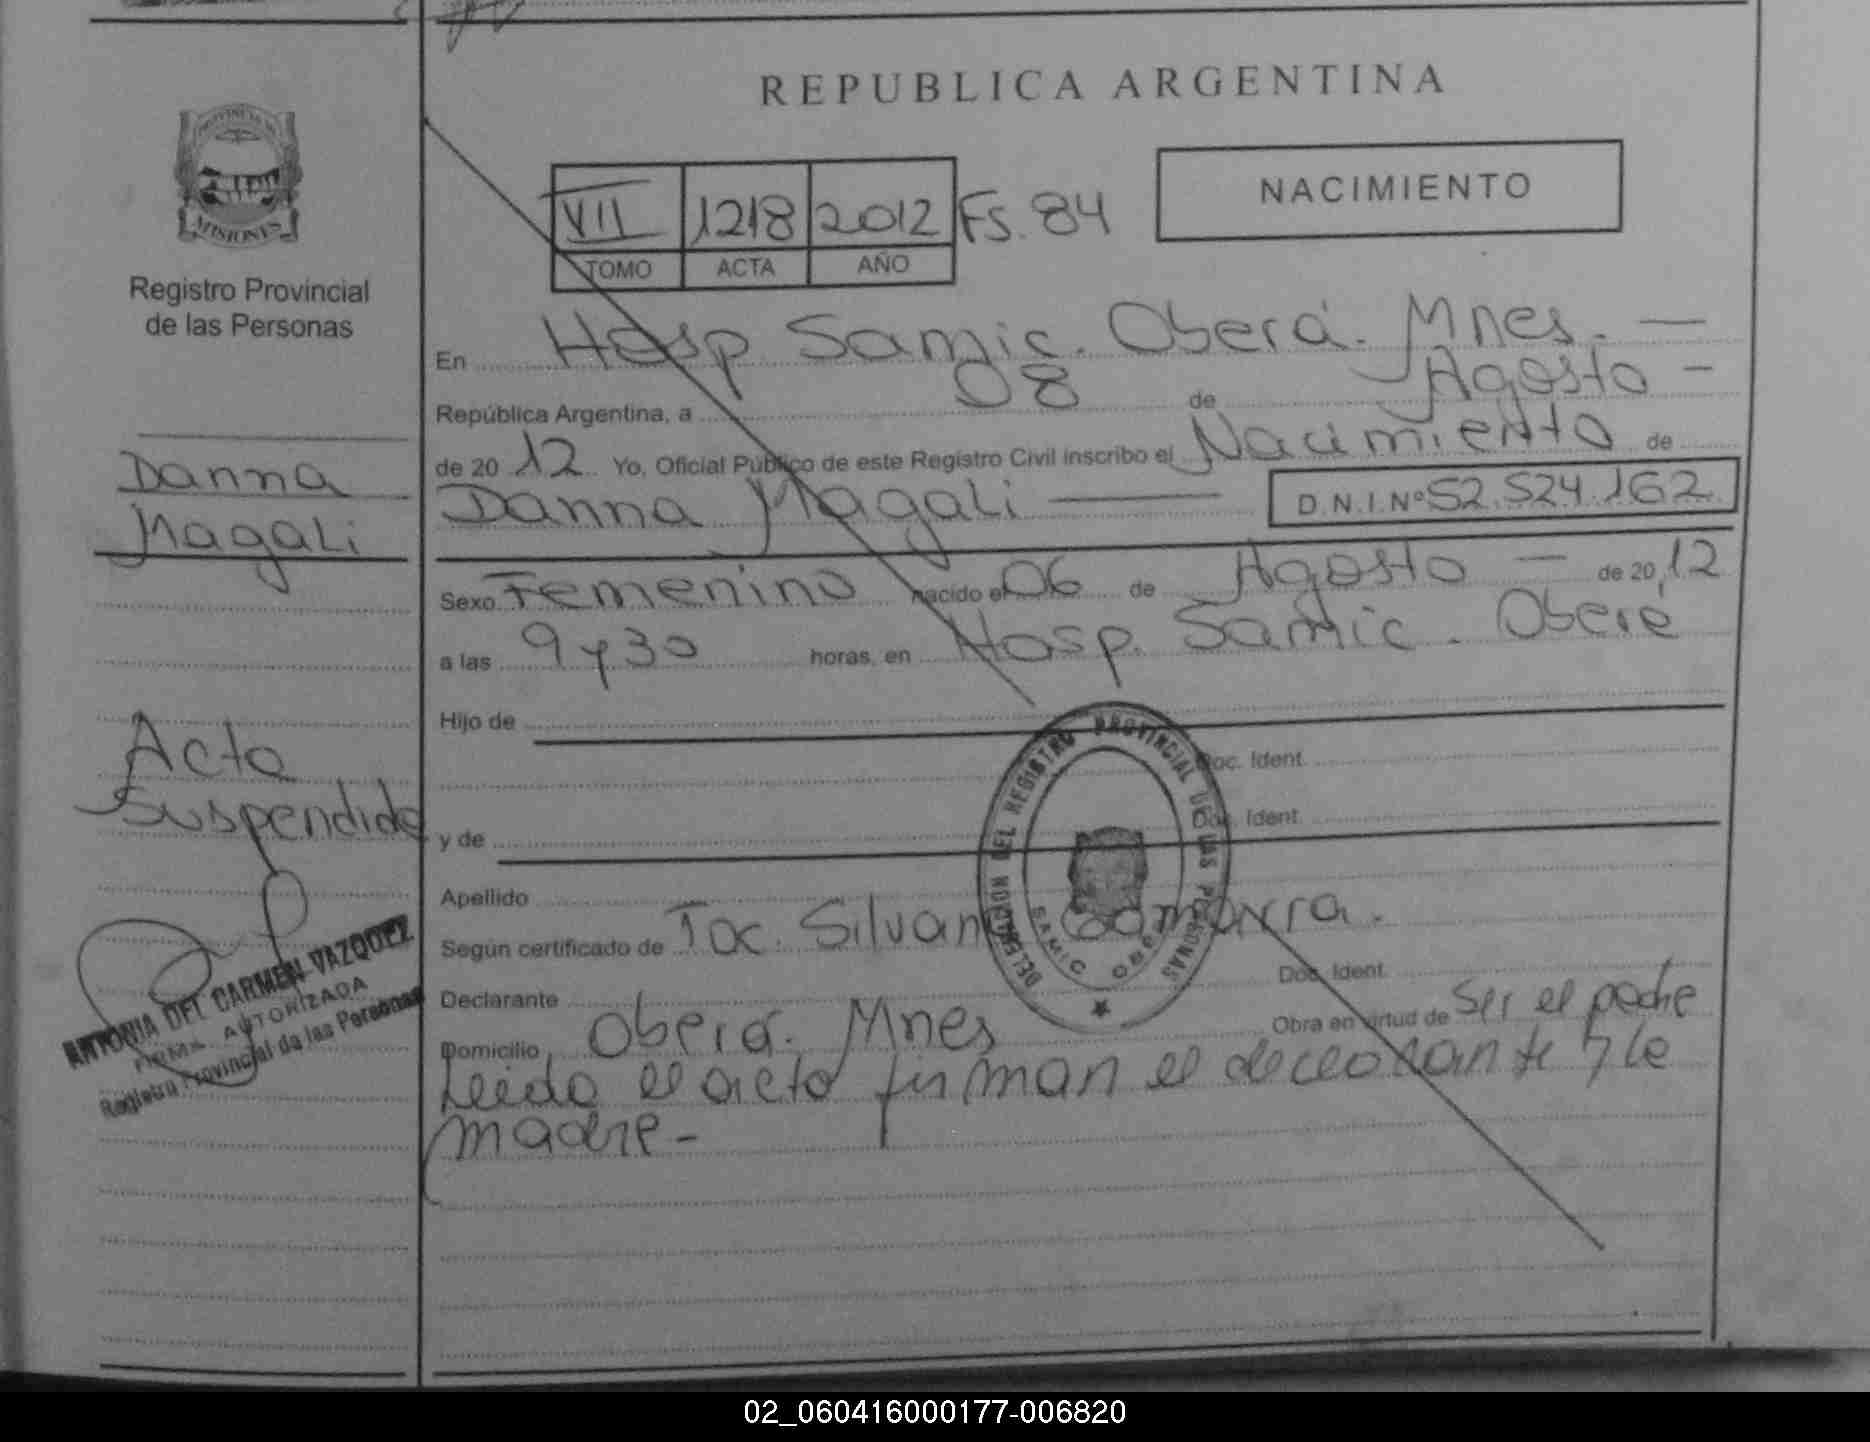 REPUBLICA ARGENTINA
PROVINCIA DE
MISIONES
Registro Provincial
de las Personas
VII 1218 2012 Fs. 84
TOMO ACTA AÑO
NACIMIENTO
En Hosp. Samic. Oberá. Mnes. —
República Argentina, a 08 de Agosto —
de 20 12 Yo, Oficial Público de este Registro Civil inscribo el Nacimiento de
Danna Magali — D.N.I. Nº 52.524.162
Danna
Magali
Sexo Femenino nacido el 06 de Agosto — de 20 12
a las 9 y 30 horas, en Hosp. Samic. Oberá
Hijo de
Doc. Ident.
y de Doc. Ident.
Apellido
Según certificado de Toc. Silvana Gamarra.
Declarante Doc. Ident.
Domicilio Oberá. Mnes Obra en virtud de Ser el padre
Leida el acta firman el declarante y la
madre -
Acta
Suspendida
ANTONIA DEL CARMEN VAZQUEZ
FIRMA AUTORIZADA
Registro Provincial de las Personas
DELEGACION DEL REGISTRO PROVINCIAL DE LAS PERSONAS
SAMIC OBERA
02_060416000177-006820